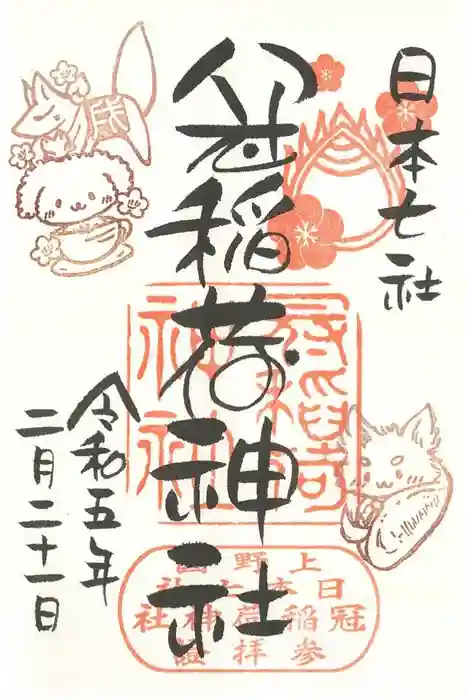 日本七社
冠稲荷神社
令和五年
二月二十一日
冠稲荷
神社
上野国
日本七社
冠稲荷神社
参拝證